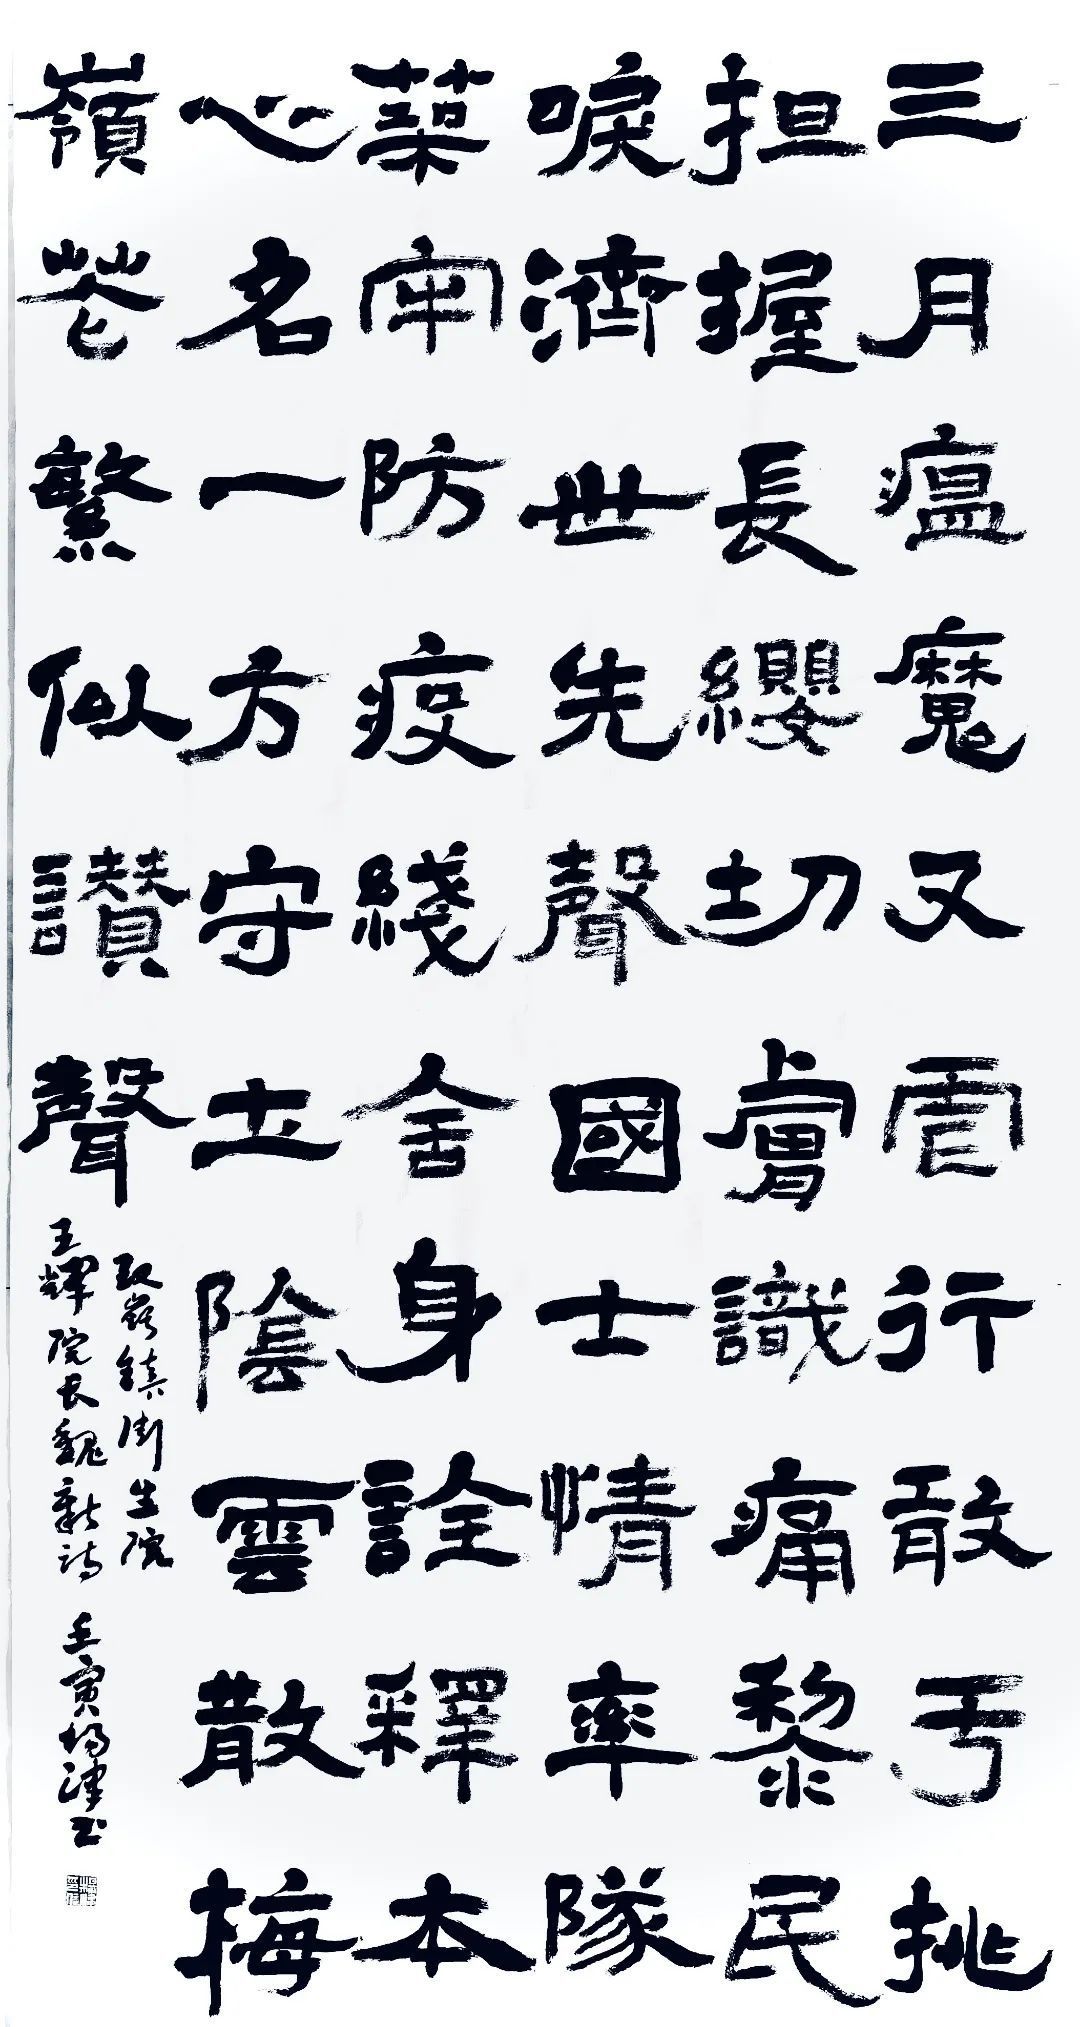 三月瘟魔又虐行敢于挑
担握長纓切膚識痛黎民
唳濟世先聲國士情率隊
築牢防疫綫舍身詮釋本
心名一方守土陰雲散梅
嶺花繁似讚聲
嶺鎮衛生院
王輝院长魏新詩 壬寅楊津書